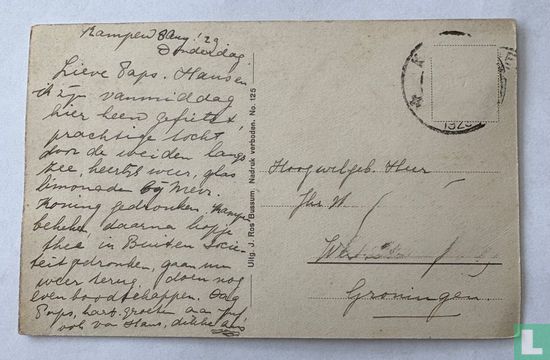 Kampen 8 Aug '29
Donderdag.
Lieve Paps. Hans en
ik zijn vanmiddag
hier heen gefietst
prachtige tocht
door de weiden langs
zee, heerlijk weer, glas
limonade bij Mevr.
Koning gedronken, Kampen
bekeken, daarna kopje
thee in Buiten Socie-
teit gedronken, gaan nu
weer terug, doen nog
even boodschappen. Dag
Paps, hart. groeten aan
ook van Hans, dikke
Uitg. J. Ros Bussum. Nadruk verboden. No. 125
1929
Hoogwelgeb. Heer
Jhr.
Groningen
catawiki